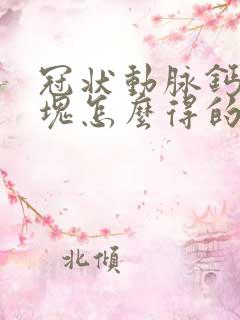 冠狀動脉鈣
塊怎麼得的
北傾